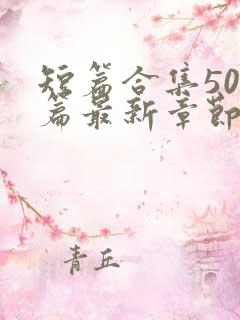 短篇合集50
篇最新章节
青丘